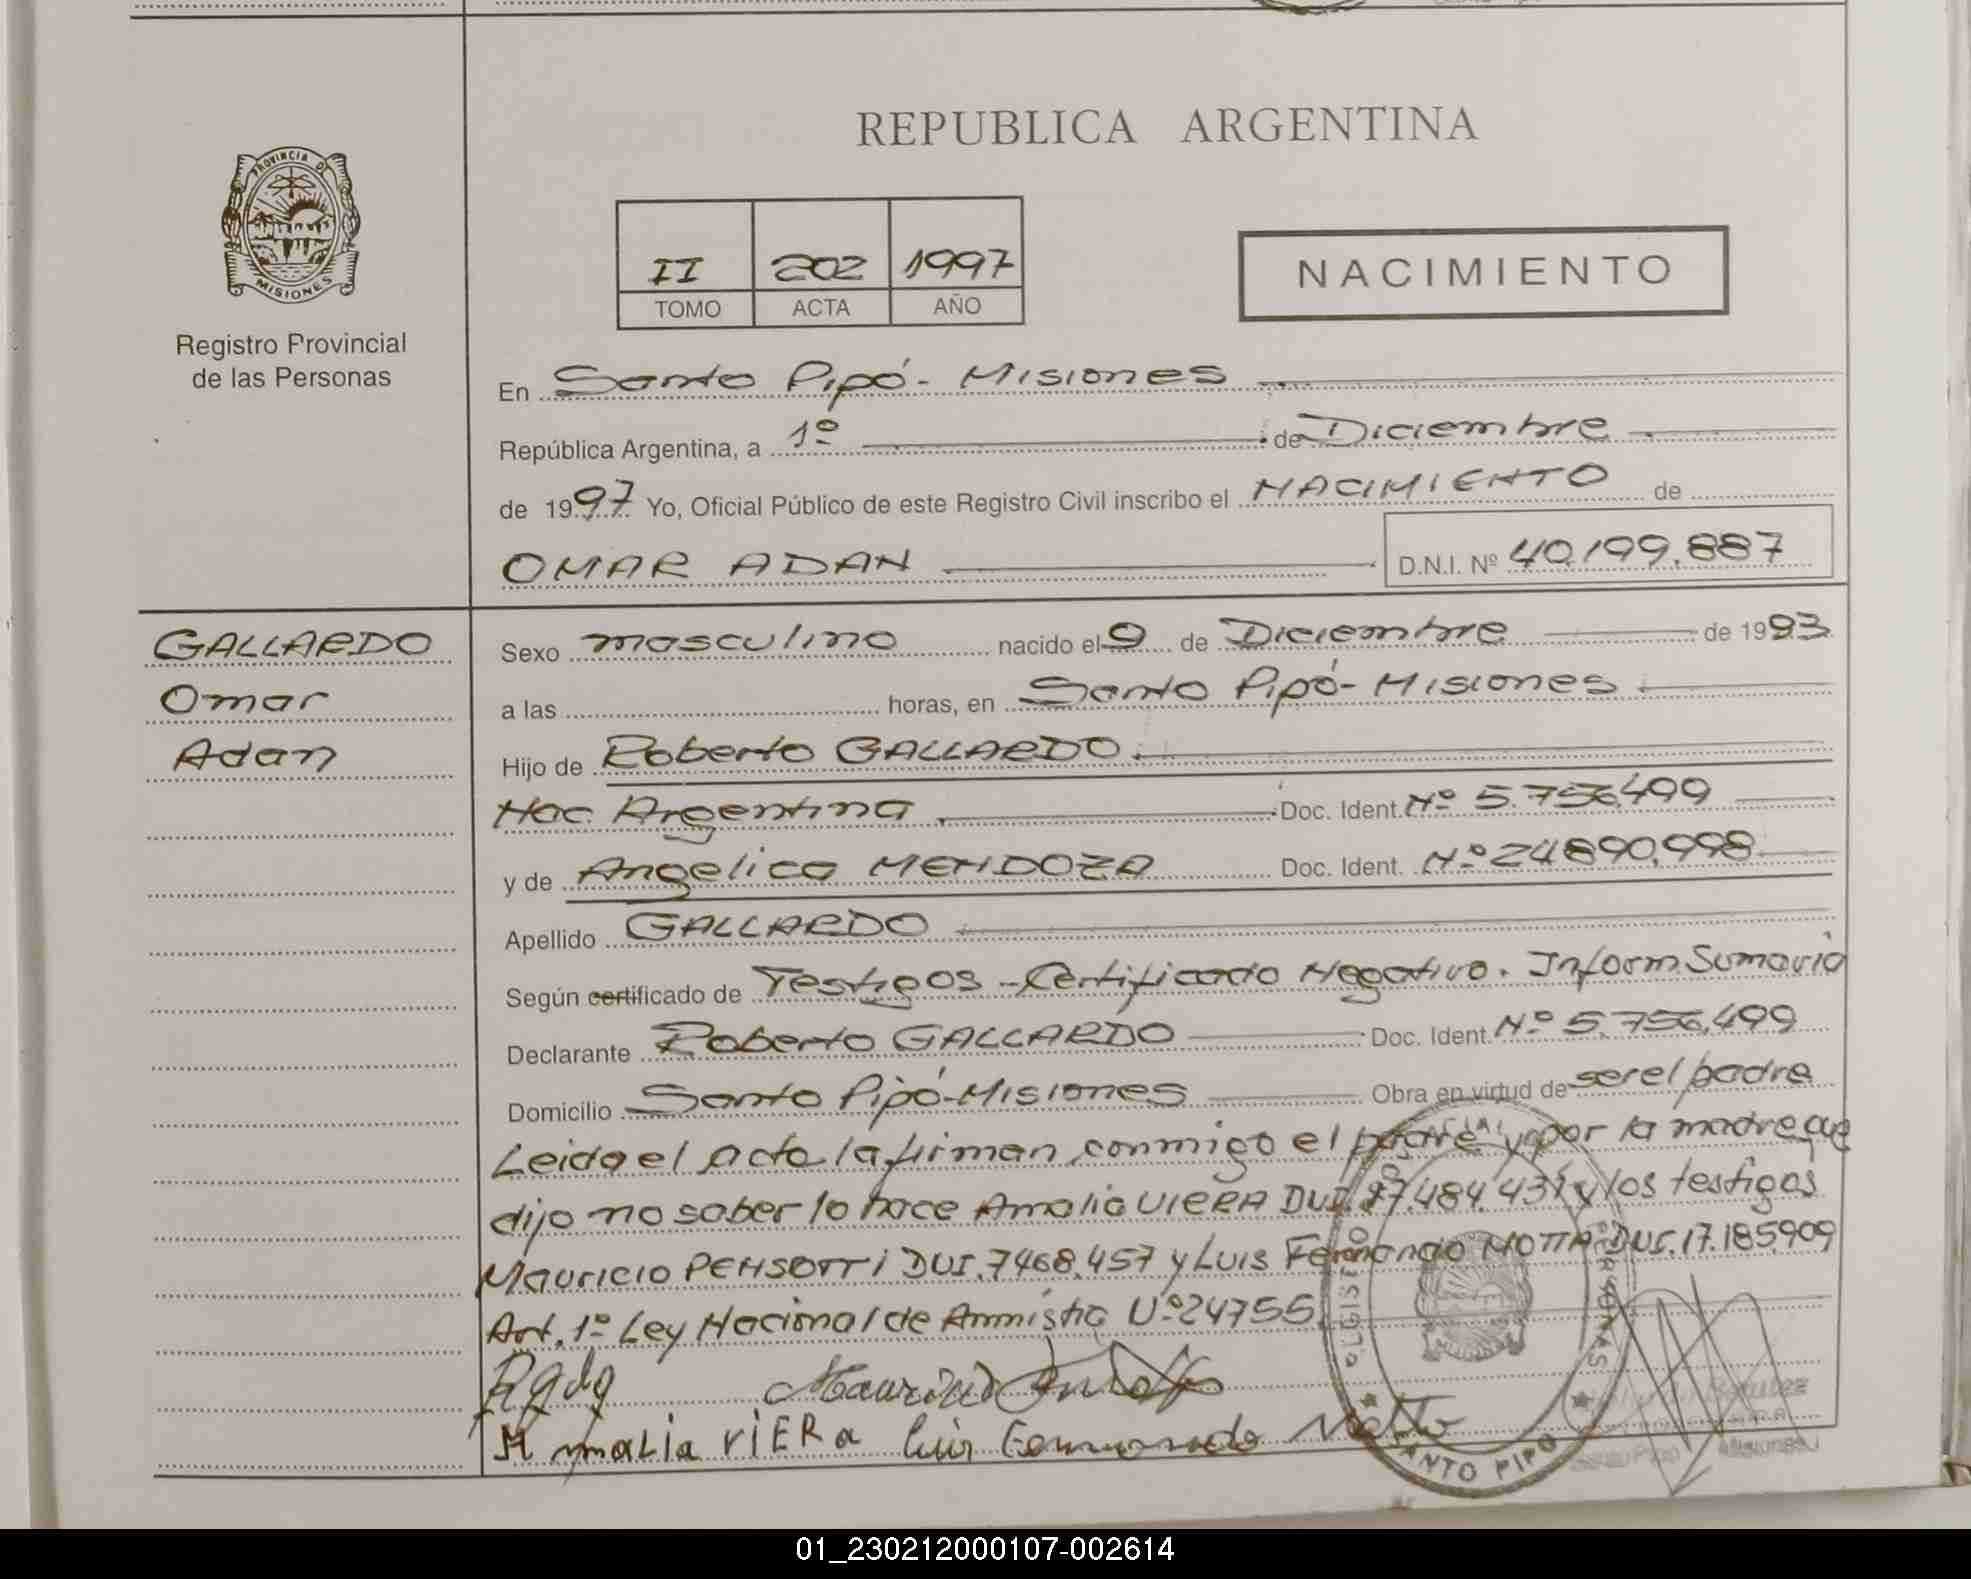 PROVINCIA DE
MISIONES
Registro Provincial
de las Personas
REPUBLICA ARGENTINA
II 202 1997
TOMO ACTA AÑO
NACIMIENTO
En Santo Pipó - Misiones
República Argentina, a 1º de Diciembre
de 1997 Yo, Oficial Público de este Registro Civil inscribo el NACIMIENTO de
OMAR ADAN D.N.I. Nº 40.199.887
GALLARDO
Omar
Adan
Sexo masculino nacido el 9 de Diciembre de 1993
a las horas, en Santo Pipó - Misiones
Hijo de Roberto GALLARDO
Nac. Argentina Doc. Ident. Nº 5.756.499
y de Angelica MENDOZA Doc. Ident. Nº 24.890.998
Apellido GALLARDO
Según certificado de Testigos - Certificado Negativo. Inform. Sumaria
Declarante Roberto GALLARDO Doc. Ident. Nº 5.756.499
Domicilio Santo Pipó - Misiones Obra en virtud de ser el padre
Leida el acta la firman conmigo el padre y por la madre que
dijo no saber lo hace Amalia VIERA DUI. 484.431 y los testigos
Mauricio PENSOTTI DUI. 7468.457 y Luis Fernando MOTTA DUI. 17.185.909
Art. 1º Ley Nacional de Anmistia Nº 24755
Mauricio
Amalia VIERA Luis Motta
SANTO PIPO
01_230212000107-002614